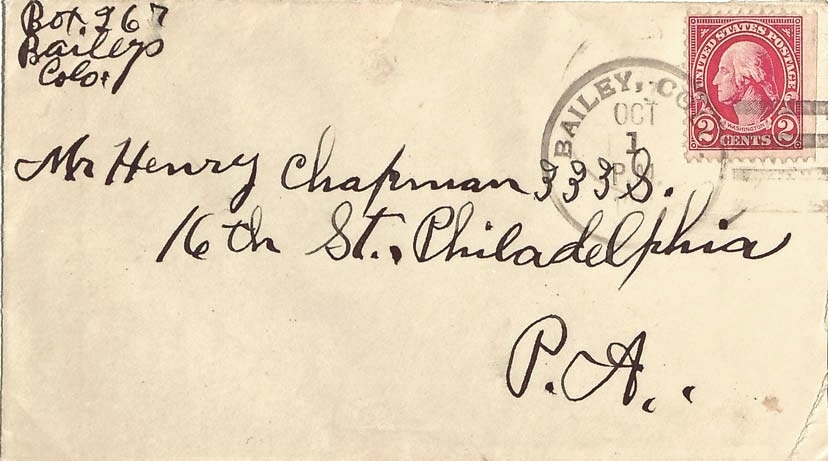 Box 267
Baileys
Colo.
BAILEY, CO
OCT
1
P.M.
UNITED STATES POSTAGE
WASHINGTON
2 CENTS 2
Mr Henry Chapman 333 S.
16th St., Philadelphia
P.A..